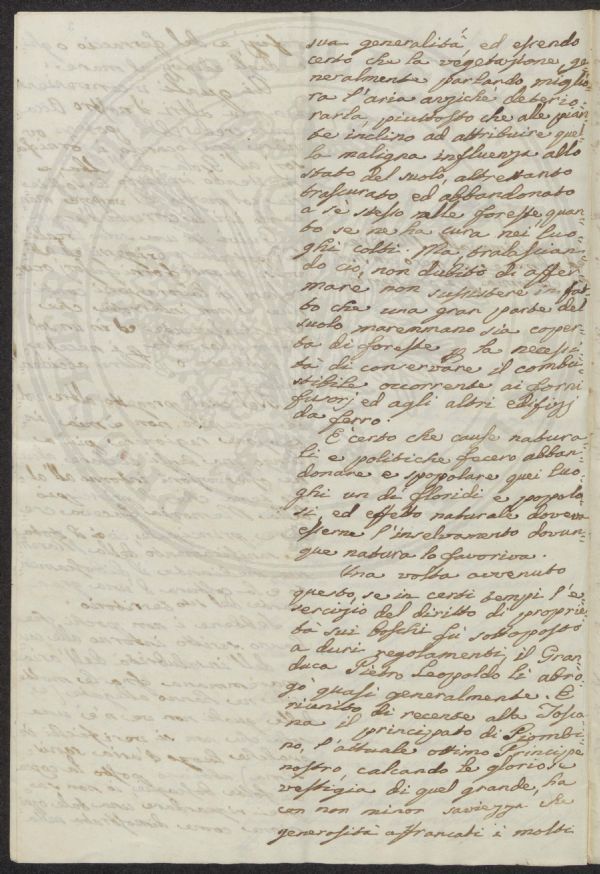 sua generalità, ed essendo
certo che la vegetazione, ge-
neralmente parlando, miglio-
ra l'aria anziché deterio-
rarla, piuttosto che alle pian-
te inclino ad attribuire quel-
la maligna influenza allo
stato del suolo, altrettanto
trascurato ed abbandonato
a sé stesso nelle foreste, quan-
to se ne ha cura nei luo-
ghi colti. Ma tralascian-
do ciò, non dubito di affer-
mare non sussistere in fat-
to che una gran parte del
suolo maremmano sia coper-
ta di foreste p la necessi-
tà di conservare il combu-
stibile occorrente ai forni
fusorj ed agli altri edifizj
da ferro.
È certo che cause natura-
li e politiche fecero abban-
donare e spopolare quei luo-
ghi un dì floridi e popolo-
si, ed effetto naturale doveva
esserne l'inselvamento dovun-
que natura lo favoriva.
Una volta avvenuto
questo, se in certi tempi l'e-
sercizio del diritto di proprie-
tà sui boschi fù sottoposto
a duri regolamenti, il Gran-
duca Pietro Leopoldo li abro-
gò quasi generalmente. E
riunito di recente alla Tosca-
na il principato di Piombi-
no, l'attuale ottimo Principe
nostro, calcando le gloriose
vestigia di quel grande, ha
con non minor saviezza che
generosità affrancati i molti